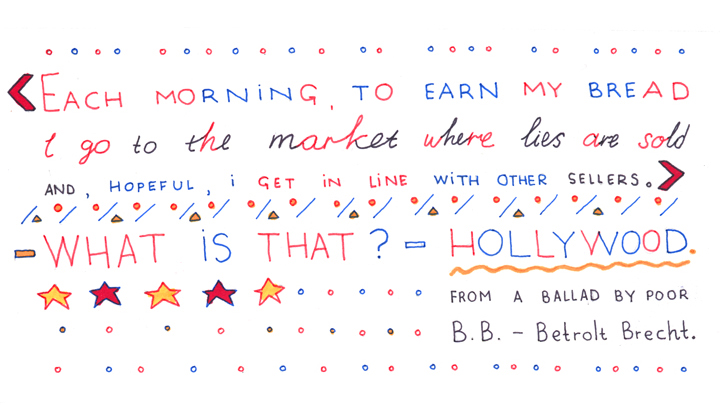 <EACH MORNiNG, TO EARN MY BREAD
I go to the market where lies are sold
AND, HOPEFUL, i GET IN LiNE WiTH OTHER SELLERS.>
-WHAT iS THAT? - HOLLYWOOD.
FROM A BALLAD BY POOR
B.B. - Betrolt Brecht.